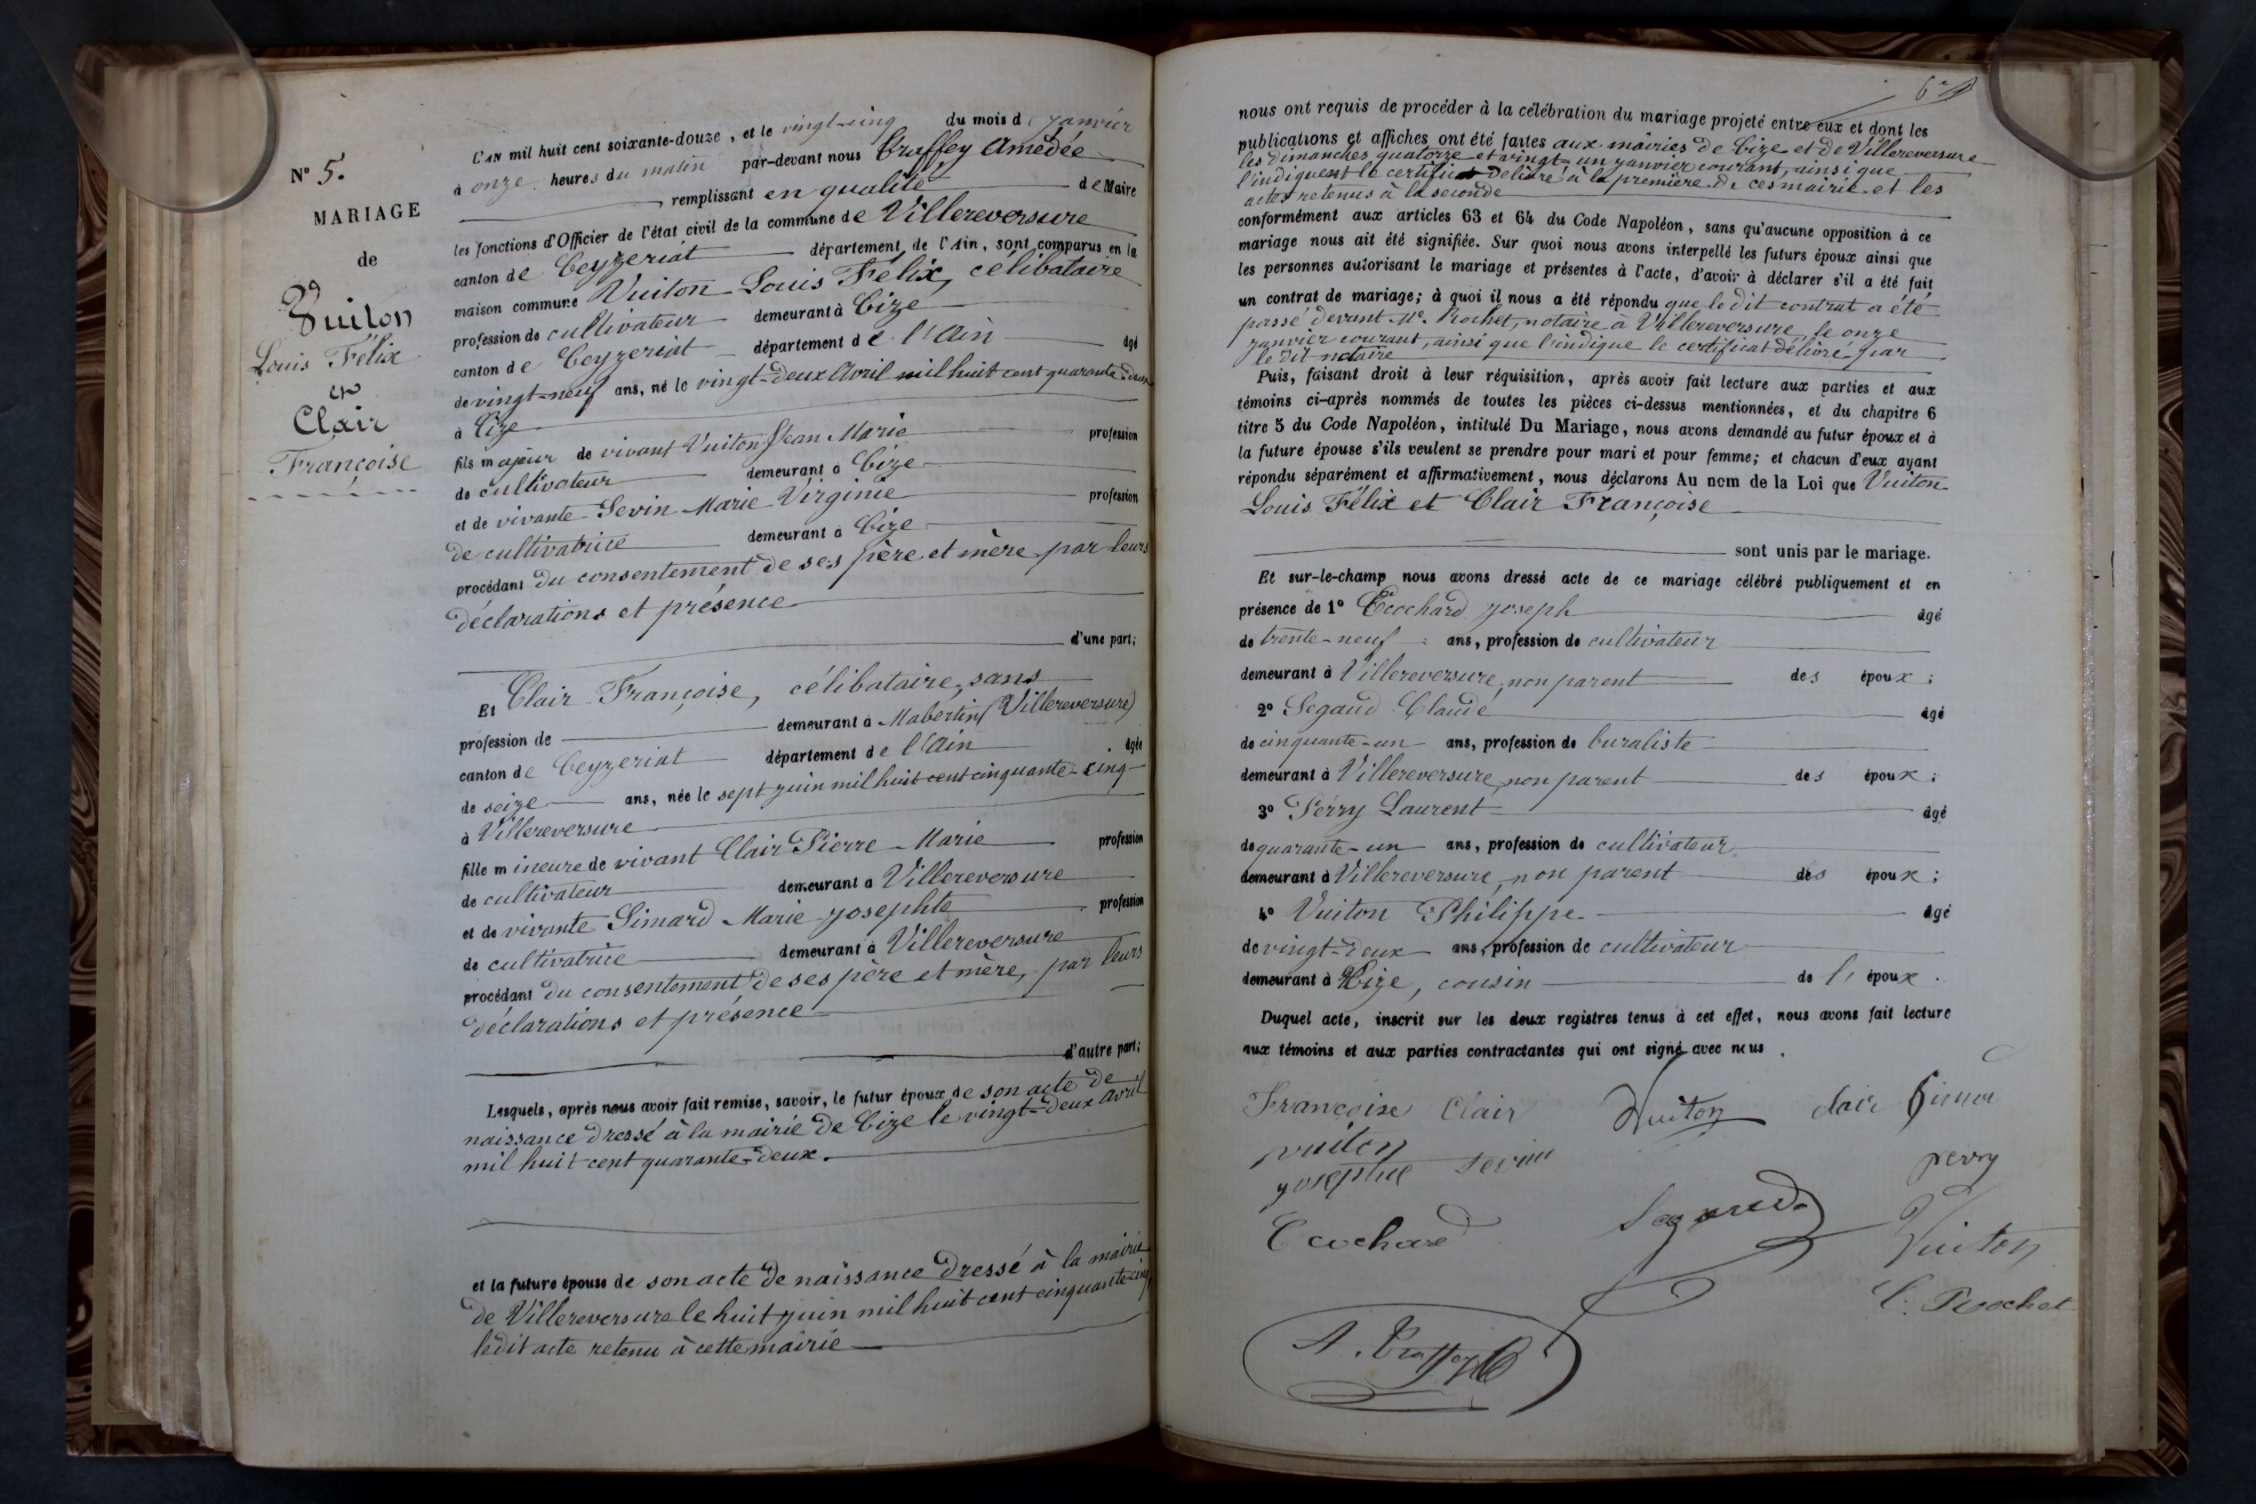 N° 5.
MARIAGE
de
Vuiton
Louis Félix
et
Clair
Françoise
L'AN mil huit cent soixante-douze, et le vingt-cinq du mois de janvier
à onze heures du matin par-devant nous Truffey Amédée
remplissant en qualité de Maire
les fonctions d'Officier de l'état civil de la commune de Villereversure
canton de Ceyzeriat département de l'Ain, sont comparus en la
maison commune Vuiton Louis Félix, célibataire
profession de cultivateur demeurant à Cize
canton de Ceyzeriat département de l'Ain âgé
de vingt-neuf ans, né le vingt-deux Avril mil huit cent quarante-deux
à Cize
fils majeur de vivant Vuiton Jean Marie profession
de cultivateur demeurant à Cize
et de vivante Sevin Marie Virginie profession
de cultivatrice demeurant à Cize
procédant du consentement de ses père et mère par leurs
déclarations et présence
d'une part;
Et Clair Françoise, célibataire, sans
profession de demeurant à Mabertin (Villereversure)
canton de Ceyzeriat département de l'Ain âgée
de seize ans, née le sept juin mil huit cent cinquante-cinq
à Villereversure
fille mineure de vivant Clair Pierre-Marie profession
de cultivateur demeurant à Villereversure
et de vivante Simard Marie josephte profession
de cultivatrice demeurant à Villereversure
procédant du consentement de ses père et mère, par leurs
déclarations et présence
d'autre part;
Lesquels, après nous avoir fait remise, savoir, le futur époux de son acte de
naissance dressé à la mairie de Cize le vingt-deux avril
mil huit cent quarante-deux.
et la future épouse de son acte de naissance dressé à la mairie
de Villereversure le huit juin mil huit cent cinquante-cinq
ledit acte retenu à cette mairie
nous ont requis de procéder à la célébration du mariage projeté entre eux et dont les
publications et affiches ont été faites aux mairies de Cize et de Villereversure
les dimanches quatorze et vingt-un janvier courant, ainsi que
l'indiquent le certificat délivré à la première de ces mairie et les
actes retenus à la seconde
conformément aux articles 63 et 64 du Code Napoléon, sans qu'aucune opposition à ce
mariage nous ait été signifiée. Sur quoi nous avons interpellé les futurs époux ainsi que
les personnes autorisant le mariage et présentes à l'acte, d'avoir à déclarer s'il a été fait
un contrat de mariage; à quoi il nous a été répondu que le dit contrat a été
passé devant Me. Rochet, notaire à Villereversure, le onze
janvier courant, ainsi que l'indique le certificat délivré par
le dit notaire
Puis, faisant droit à leur réquisition, après avoir fait lecture aux parties et aux
témoins ci-après nommés de toutes les pièces ci-dessus mentionnées, et du chapitre 6
titre 5 du Code Napoléon, intitulé Du Mariage, nous avons demandé au futur époux et à
la future épouse s'ils veulent se prendre pour mari et pour femme; et chacun d'eux ayant
répondu séparément et affirmativement, nous déclarons Au nom de la Loi que Vuiton
Louis Félix et Clair Françoise
sont unis par le mariage.
Et sur-le-champ nous avons dressé acte de ce mariage célébré publiquement et en
présence de 1° Ecochard joseph âgé
de trente-neuf ans, profession de cultivateur
demeurant à Villereversure, non parent des époux;
2° Segaud Claude âgé
de cinquante-un ans, profession de buraliste
demeurant à Villereversure, non parent des époux;
3° Perry Laurent âgé
de quarante-un ans, profession de cultivateur
demeurant à Villereversure, non parent des époux;
4° Vuiton Philippe. âgé
de vingt-deux ans, profession de cultivateur
demeurant à Cize, cousin de l' époux.
Duquel acte, inscrit sur les deux registres tenus à cet effet, nous avons fait lecture
aux témoins et aux parties contractantes qui ont signé avec nous.
Françoise Clair Vuiton clair
vuiton
josephte sevin perry
Ecochard Segaud Vuiton